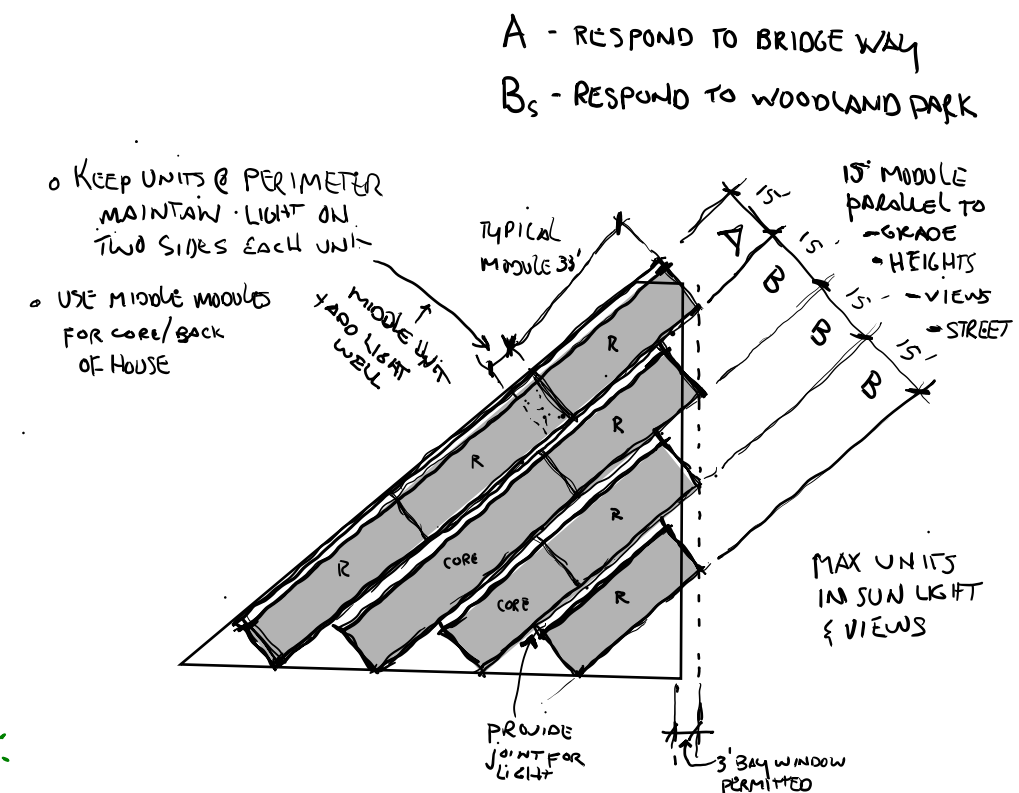 A - RESPOND TO BRIDGE WAY
Bs - RESPOND TO WOODLAND PARK
o KEEP UNITS @ PERIMETER
MAINTAIN LIGHT ON
TWO SIDES EACH UNIT
• USE MIDDLE MODULES
FOR CORE/BACK
OF HOUSE
MIDDLE UNIT
* ADD LIGHT
WELL
TYPICAL
MODULE 33'
15' MODULE
PARALLEL TO
- GRADE
• HEIGHTS
- VIEWS
- STREET
15'
15'
15'
15'
A
B
B
B
R
R
R
R
R
R
CORE
CORE
MAX UNITS
IN SUN LIGHT
& VIEWS
PROVIDE
JOINT FOR
LIGHT
3' BAY WINDOW
PERMITTED